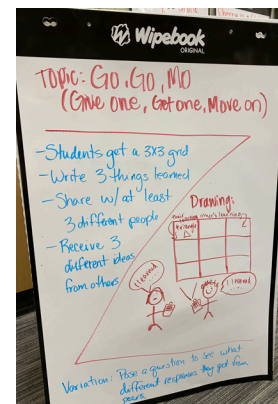 Wipebook
ORIGINAL
Topic: Go, Go, Mo
(Give one, Get one, Move on)
- Students get a 3x3 grid
- Write 3 things learned
- Share w/ at least
3 different people
- Receive 3
different ideas
from others
Drawing:
triangle
I learned
I learned
Variation: Pose a question to see what
different responses they get from
peers